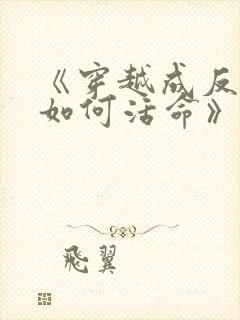 《穿越成反
如何活命》
飛翼